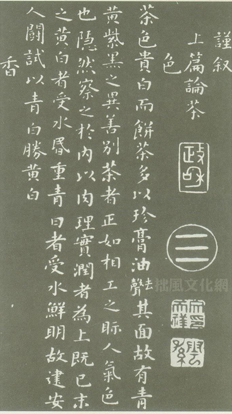 謹叙
上篇論茶
色
茶色貴白而餅茶多以珍膏油去聲其面故有青
黃紫黑之異善別茶者正如相工之眎人氣色
也隱然察之於内以肉理實潤者為上既已末
之黃白者受水昏重青白者受水鮮明故建安
人鬭試以青白勝黃白
香
政和